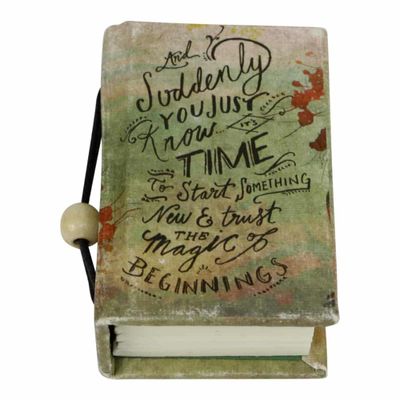 And
Suddenly
YOU JUST
Know... IT'S
TIME
To Start SOMETHING
New & trust
THE
Magic of
BEGINNINGS